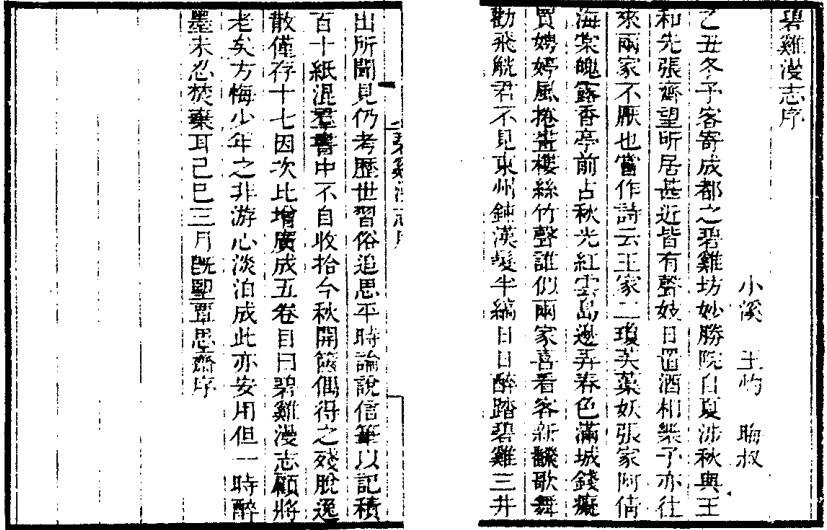 碧雞漫志序
小溪　王灼　晦叔
乙丑冬予客寄成都之碧雞坊妙勝院自夏涉秋與王
和先張齊望所居甚近皆有聲妓日置酒相樂予亦往
來兩家不厭也嘗作詩云王家二瓊芙蕖妖張家阿倩
海棠魄露香亭前占秋光紅雲島邊弄春色滿城錢癡
買娉婷風捲畫樓絲竹聲誰似兩家喜看客新飜歌舞
勸飛觥君不見東州鈍漢髮半縞日日醉踏碧雞三井
碧雞漫志序
出所聞見仍考歷世習俗追思平時論說信筆以記積
百十紙混羣書中不自收拾今秋開篋偶得之殘脫逸
散僅存十七因次比增廣成五卷目曰碧雞漫志顧將
老矣方悔少年之非游心淡泊成此亦安用但一時醉
墨未忍焚棄耳己巳三月既望覃思齋序